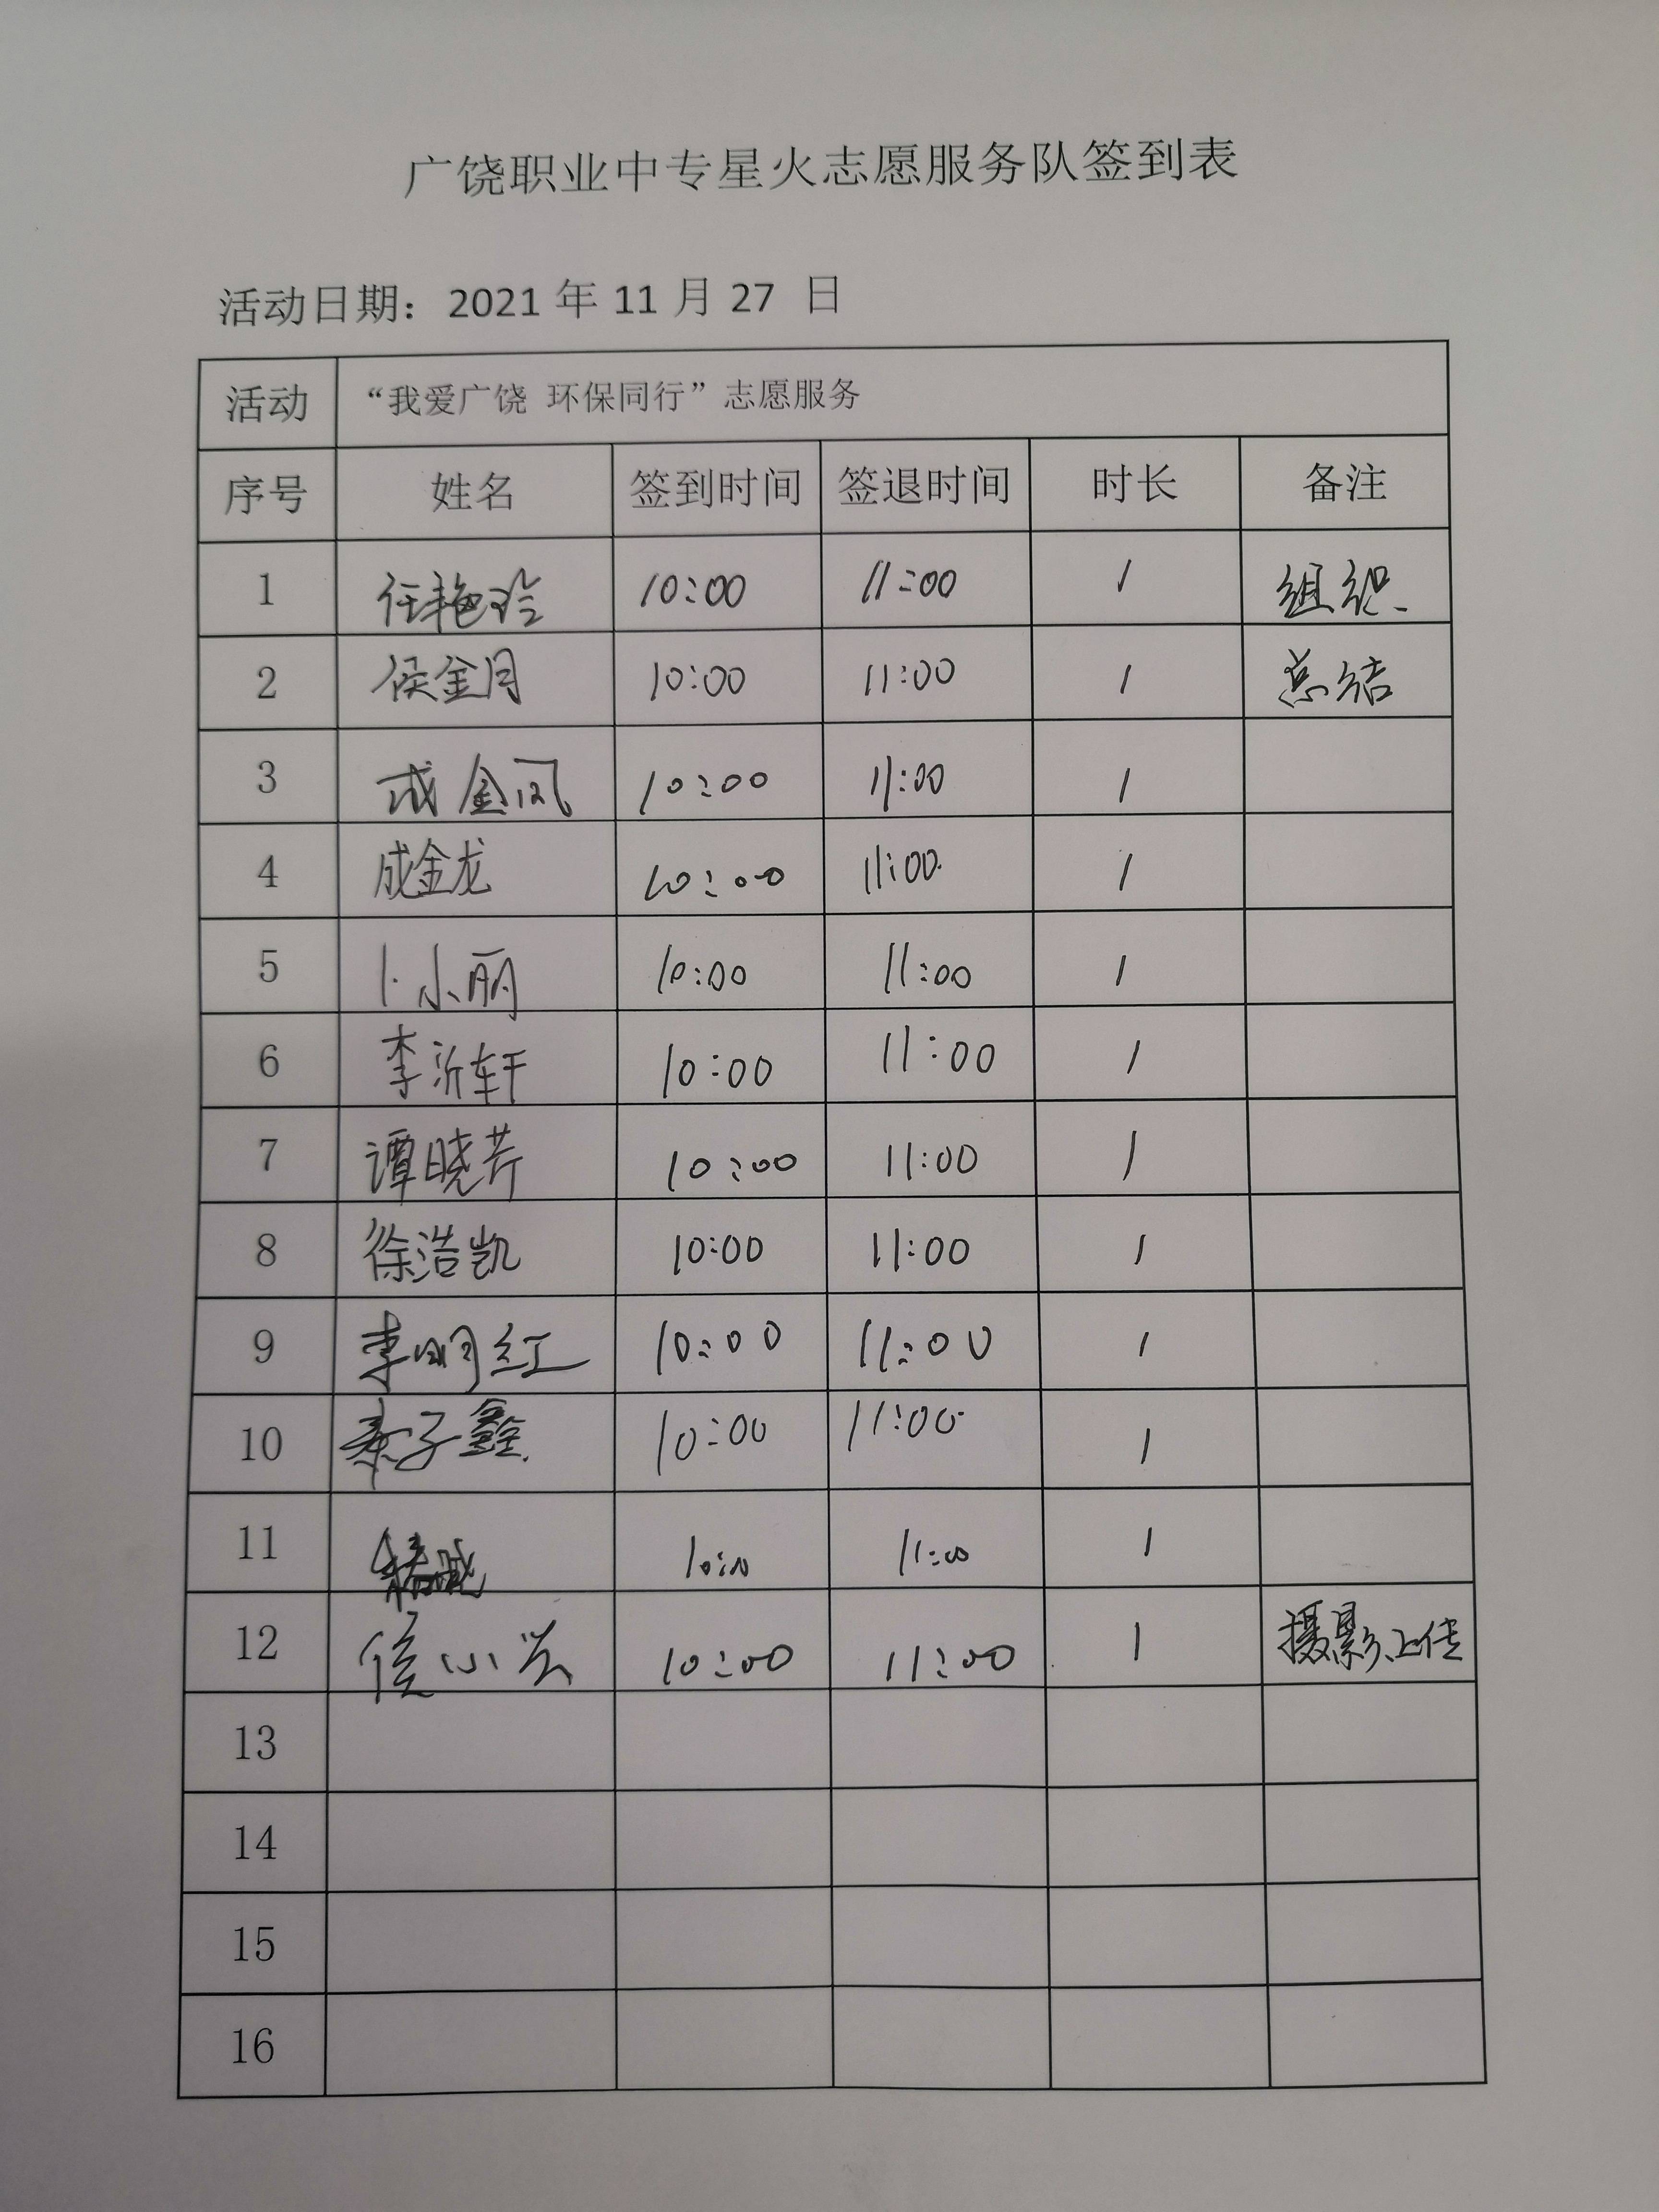 广饶职业中专星火志愿服务队签到表
活动日期：2021 年 11 月 27 日
活动 “我爱广饶 环保同行”志愿服务
序号 姓名 签到时间 签退时间 时长 备注
1 任艳玲 10:00 11:00 1 组织
2 侯金月 10:00 11:00 1 总结
3 成金凤 10:00 11:00 1
4 成金龙 10:00 11:00 1
5 卜小丽 10:00 11:00 1
6 李沂轩 10:00 11:00 1
7 谭晓芹 10:00 11:00 1
8 徐浩凯 10:00 11:00 1
9 李明红 10:00 11:00 1
10 子鑫 10:00 11:00 1
11 11:00 1
12 小 10:00 11:00 1 摄影、上传
13
14
15
16